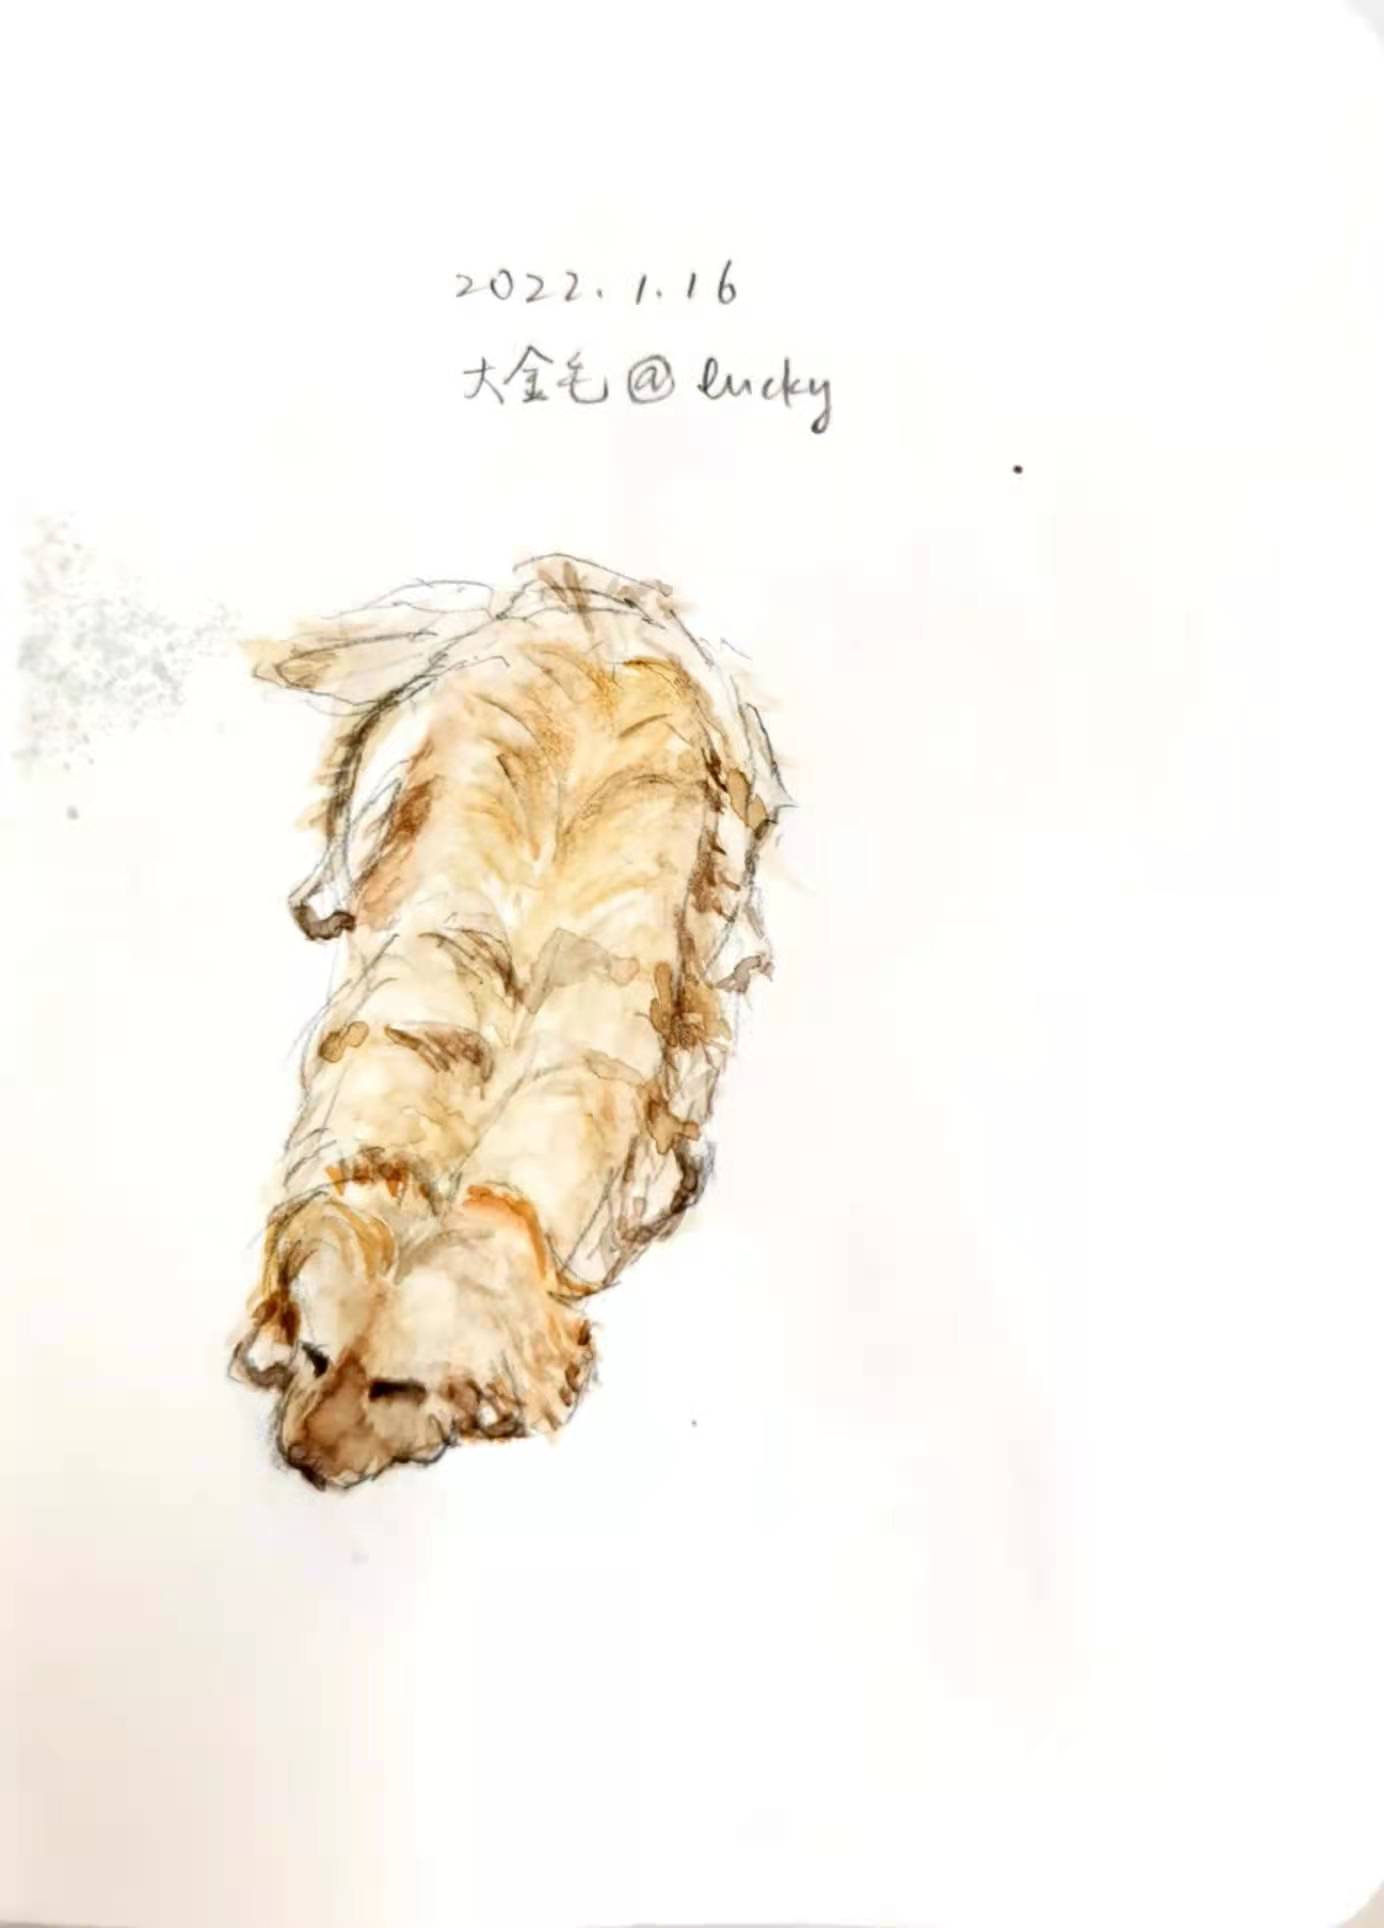 2022.1.16
大金毛@lucky